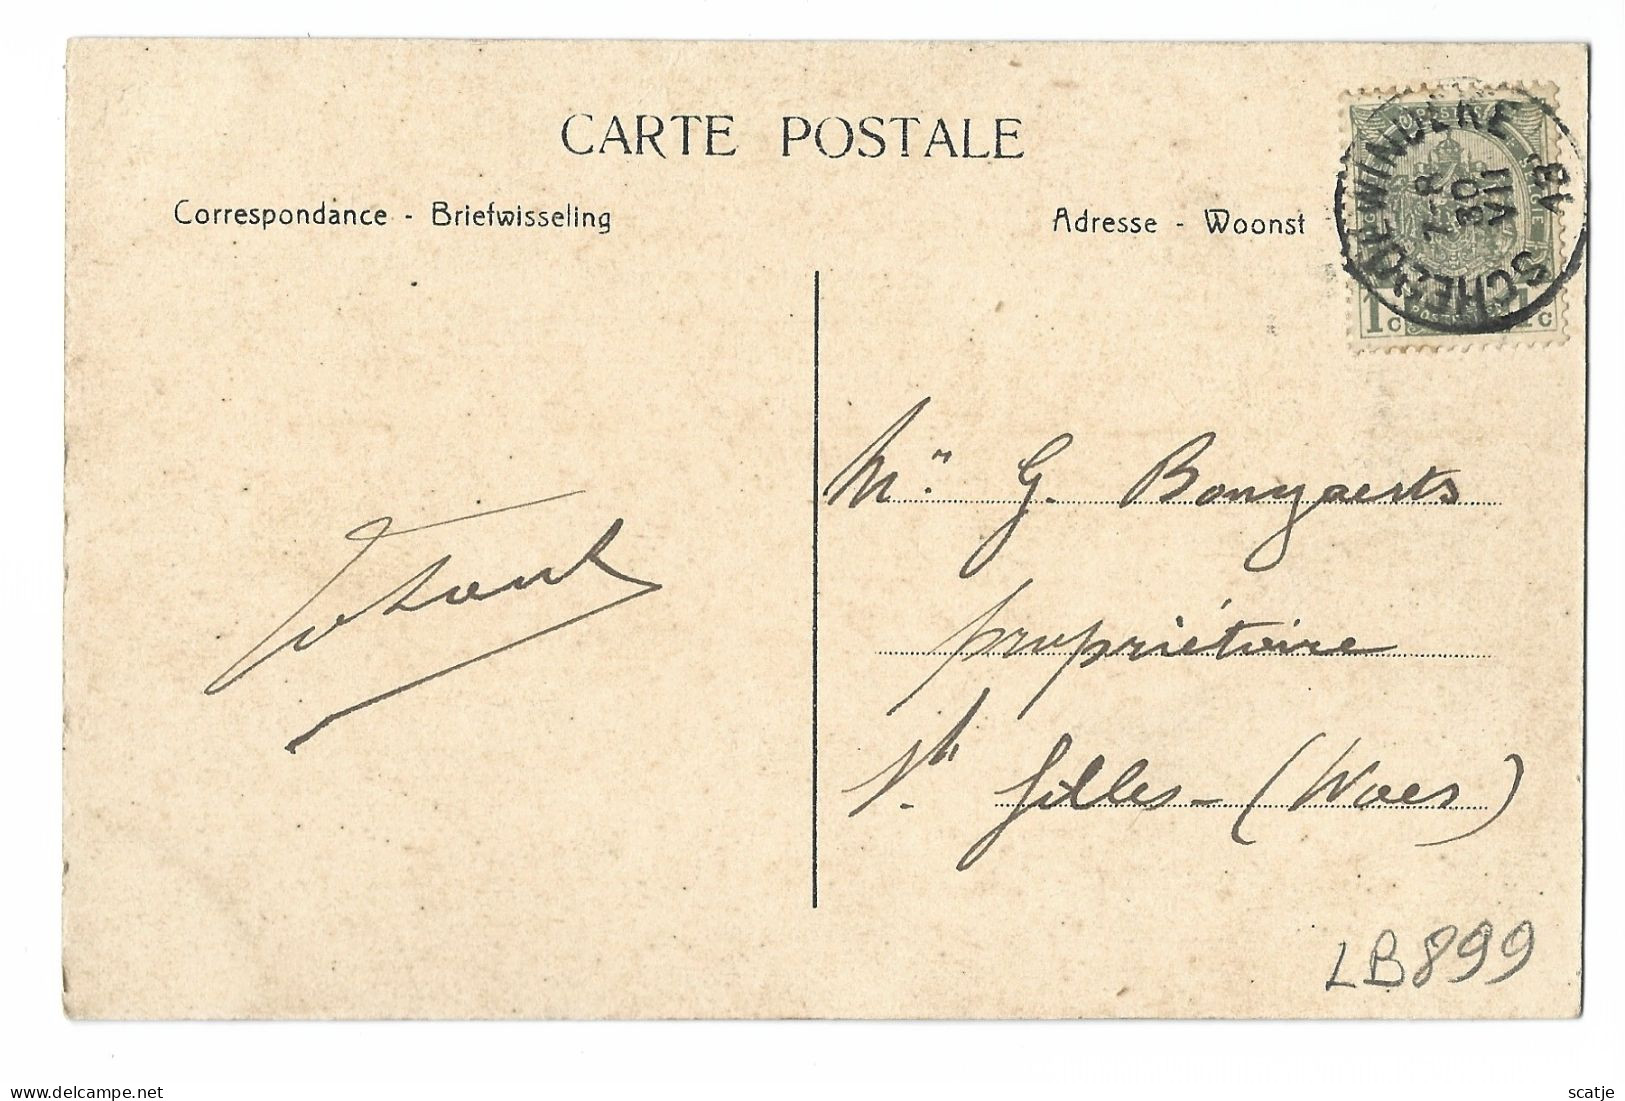 CARTE POSTALE
Correspondance - Briefwisseling
Adresse - Woonst
SCHELDEWINDEKE
7-8
30
VII
1C
Mr. G. Bongaerts
propriétaire
St Gilles - (Waes)
LB899
delcampe.net
scatje